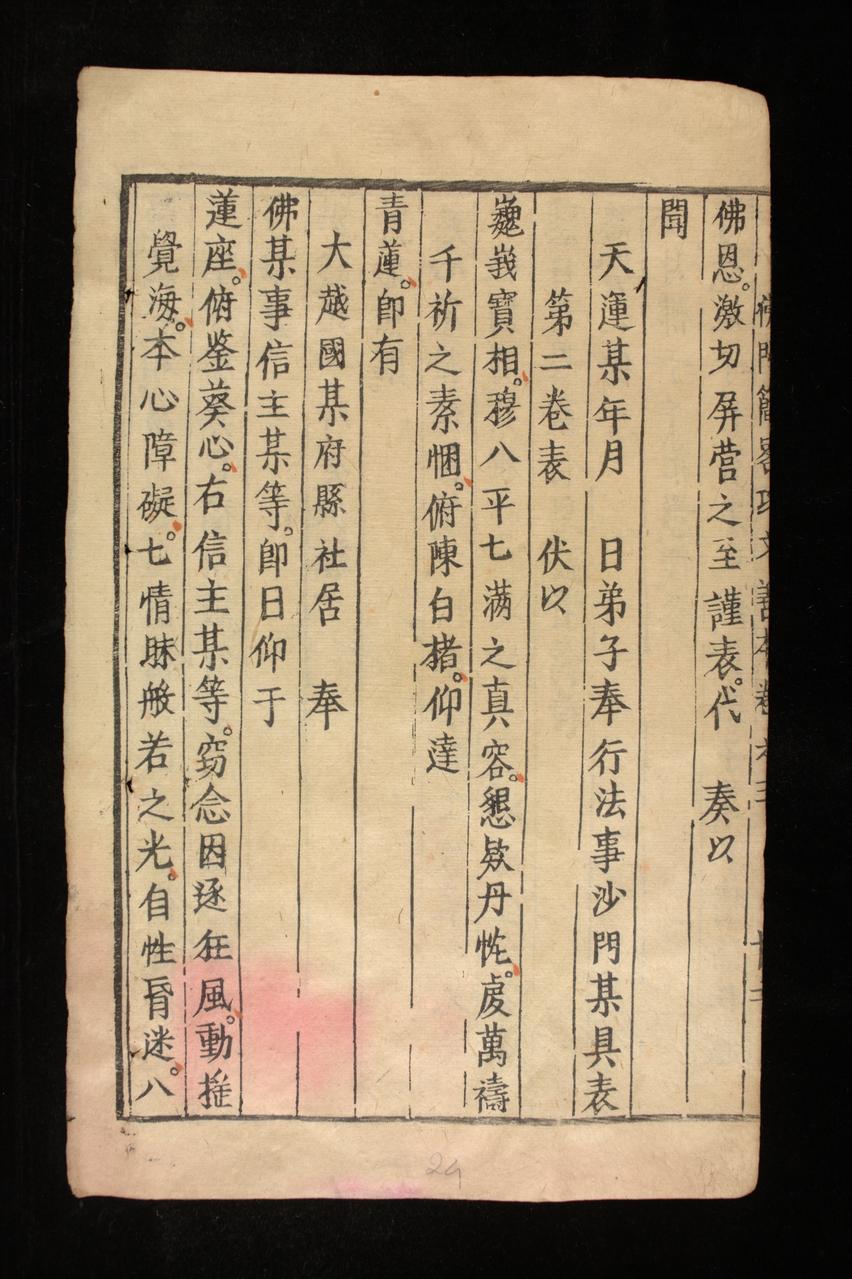 佛恩。激切屏营之至謹表。代　奏以
聞
天運某年月　日弟子奉行法事沙門某具表
第二卷表　伏以
巍峩寶相。穆八平七满之真容。懇欵丹忱。虔萬禱
千祈之素悃。俯陳白楮。仰達
青蓮。卽有
大越國某府縣社居　奉
佛某事信主某等。卽日仰于
蓮座。俯鉴葵心。右信主某等。窃念因逐狂風。動推
覺海。本心障礙。七情昧般若之光。自性昏迷。八
24